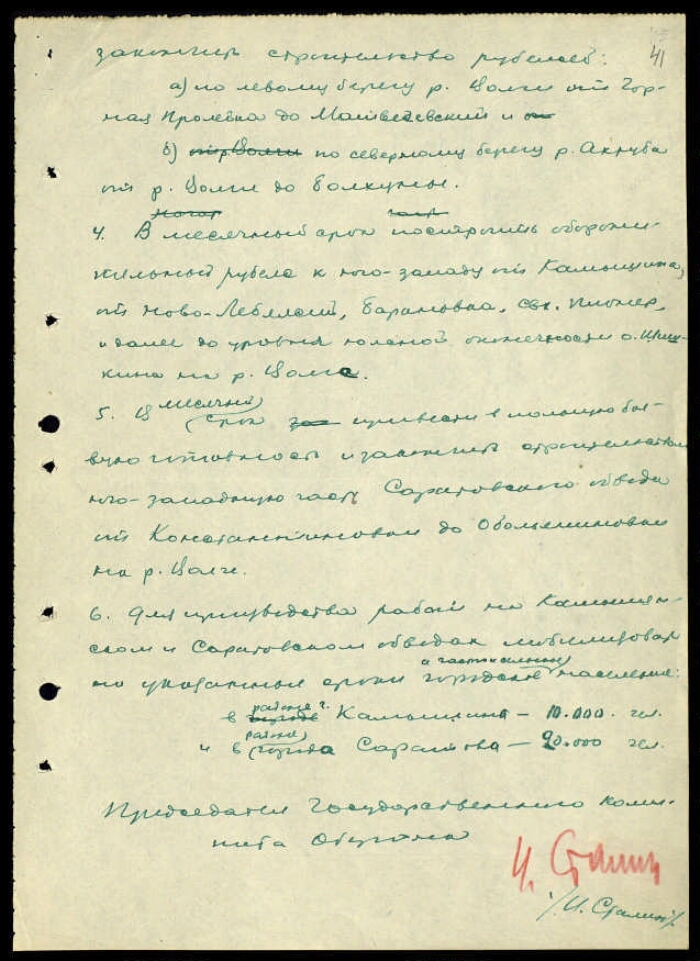 41
закончить строительство рубежей:
а) по левому берегу р. Волги от Гор-
ная Пролейка до Матвеевский и
б) от Волги по северному берегу р. Ахтуба
от р. Волги до Болхуны.
4. В месячный срок построить оборони-
тельный рубеж к юго-западу от Камышина,
от Ново-Лебяжий, Барановка, свх. Пионер,
и далее до уровня южной оконечности о. Шиш-
кина на р. Волге.
5. В месячный срок привести в полную бое-
вую готовность и закончить строительством
юго-западную часть Саратовского обвода
от Константиновки до
на р. Волге.
6. Для производства работ на Камышин-
ском и Саратовском обводах мобилизовать
на указанные сроки городское и частью сельское население:
в районе г. Камышина – 10.000 чел.
и в районе города Саратова – 20.000 чел.
Председатель Государственного Коми-
тета Обороны
И. Сталин
/И. Сталин/